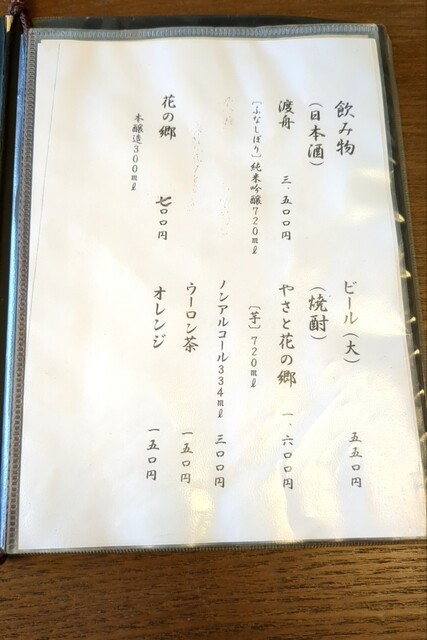 飲み物
（日本酒）
渡舟 三、五〇〇円
［ふなしぼり］純米吟醸720mℓ
花の郷 七〇〇円
本醸造300mℓ
ビール（大） 五五〇円
（焼酎）
やさと花の郷 一、六〇〇円
［芋］720mℓ
ノンアルコール334mℓ 三〇〇円
ウーロン茶 一五〇円
オレンジ 一五〇円